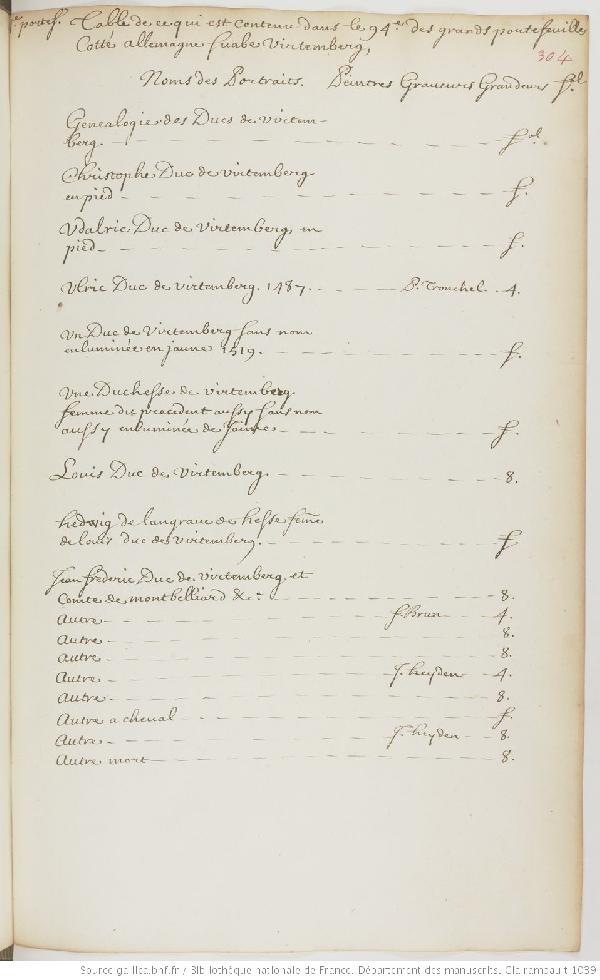 portef. Table de ce qui est contenu dans le 94e. des grands portefeuille
Cotté allemagne suabe Virtemberg,
304
Noms des Portraits. Peintres Graveurs Grandeurs fol.
Genealogie des Ducs de virtem-
berg. fol.
Christophe Duc de virtemberg
en pied f.
Vdalric Duc de virtemberg, en
pied f.
Vlric Duc de virtanberg. 1487. P. Tronchel. 4.
Vn Duc de Virtemberg sans nom
enluminée en jaune 1519. f.
Vne Duchesse de virtemberg
femme du precedent aussy sans nom
aussy enluminée de f.
Louis Duc de Virtemberg 8.
hedwig de langraue de hesse femme
de louis duc de Virtemberg. f
Jean frederic Duc de virtemberg et
Comte de montbelliard &c. 8.
Autre f. Brun 4.
Autre 8.
Autre 8.
Autre J. huyden 4.
Autre 8.
Autre a cheval f.
Autre J. huyden 8.
Autre mort 8.
Source gallica.bnf.fr / Bibliothèque nationale de France. Département des manuscrits. Clairambault 1039